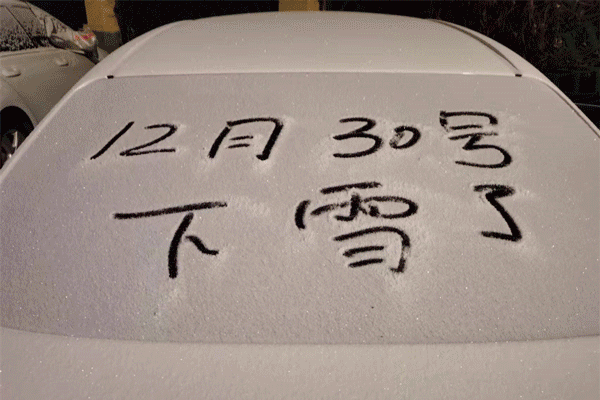 12月30号
下雪了